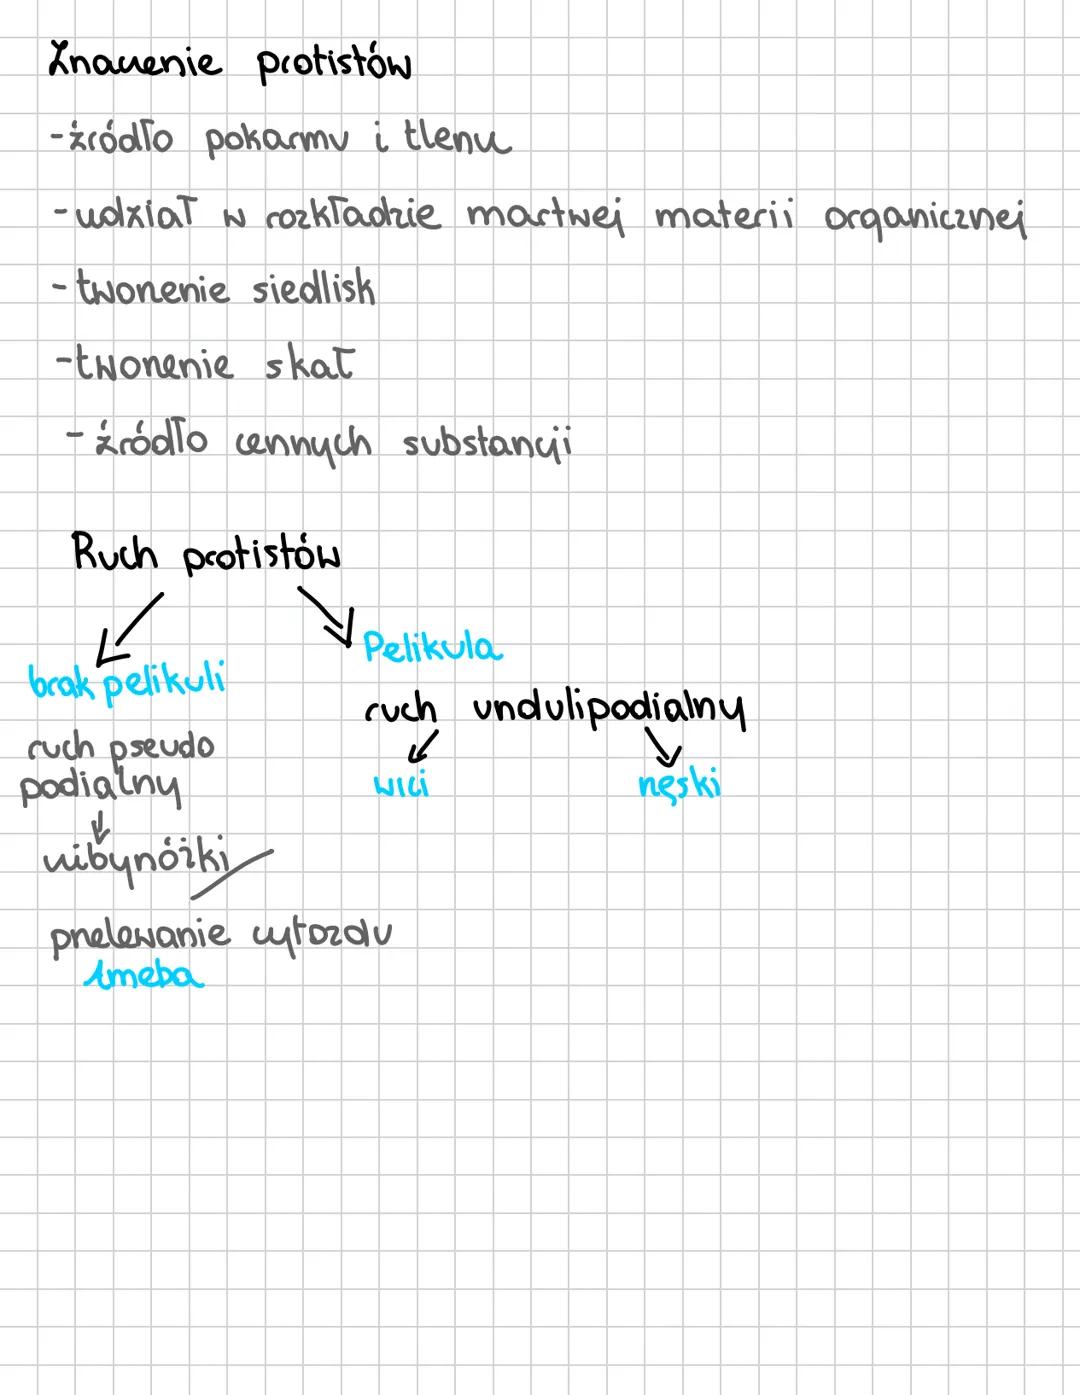 Znaczenie protistów
-źródło pokarmu i tlenu
-udział w rozkładzie martwej materii organicznej
-tworzenie siedlisk
-tworzenie skał
-źródło cennych substancji
Ruch protistów
brak pelikuli
ruch pseudo
podialny
nibynóżki
przelewanie cytozolu
Ameba
Pelikula
ruch undulipodialny
wici
rzęski